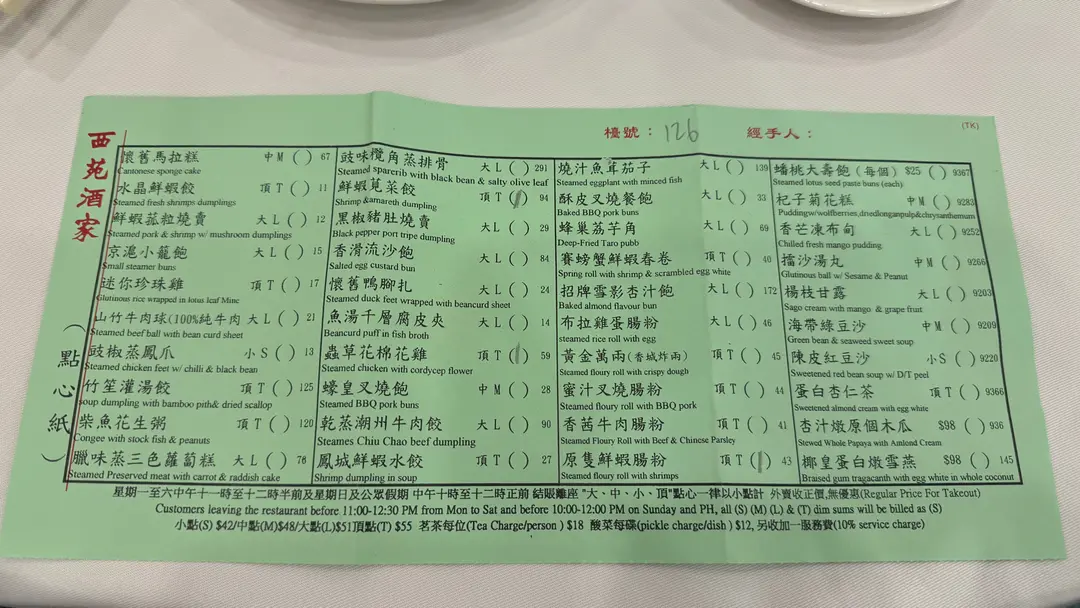 (TK)
檯號：126 經手人：
西苑酒家
（點心紙）
懷舊馬拉糕 中M ( ) 67
Cantonese sponge cake
水晶鮮蝦餃 頂T ( ) 11
Steamed fresh shrimps dumplings
鮮蝦菇粒燒賣 大L ( ) 12
Steamed pork & shrimp w/ mushroom dumplings
京滬小籠飽 大L ( ) 15
Small steamer buns
迷你珍珠雞 頂T ( ) 17
Glutinous rice wrapped in lotus leaf Mine
山竹牛肉球(100%純牛肉 大L ( ) 21
Steamed beef ball with bean curd sheet
豉椒蒸鳳爪 小S ( ) 13
Steamed chicken feet w/ chilli & black bean
竹笙灌湯餃 頂T ( ) 125
soup dumpling with bamboo pith& dried scallop
柴魚花生粥 頂T ( ) 120
Congee with stock fish & peanuts
臘味蒸三色蘿蔔糕 大L ( ) 76
Steamed Preserved meat with carrot & raddish cake
豉味欖角蒸排骨 大L ( ) 291
Steamed sparerib with black bean & salty olive leaf
鮮蝦莧菜餃 頂T ( ) 94
Shrimp &amareth dumpling
黑椒豬肚燒賣 大L ( ) 29
Black pepper port tripe dumpling
香滑流沙飽 大L ( ) 84
Salted egg custard bun
懷舊鴨腳扎 大L ( ) 24
Steamed duck feet wrapped with beancurd sheet
魚湯千層腐皮夾 大L ( ) 14
Beancurd puff in fish broth
蟲草花棉花雞 頂T ( ) 59
Steamed chicken with cordycep flower
蠔皇叉燒飽 中M ( ) 28
Steamed BBQ pork buns
乾蒸潮州牛肉餃 大L ( ) 90
Steames Chiu Chao beef dumpling
鳳城鮮蝦水餃 頂T ( ) 27
Shrimp dumpling in soup
燒汁魚茸茄子 大L ( ) 139
Steamed eggplant with minced fish
酥皮叉燒餐飽 大L ( ) 33
Baked BBQ pork buns
蜂巢荔芋角 大L ( ) 69
Deep-Fried Taro pubb
賽螃蟹鮮蝦春卷 頂T ( ) 40
Spring roll with shrimp & scrambled egg white
招牌雪影杏汁飽 大L ( ) 172
Baked almond flavour bun
布拉雞蛋腸粉 大L ( ) 46
steamed rice roll with egg
黃金萬兩(香城炸兩) 頂T ( ) 45
Steamed floury roll with crispy dough
蜜汁叉燒腸粉 頂T ( ) 44
Steamed floury roll with BBQ pork
香茜牛肉腸粉 頂T ( ) 41
Steamed Floury roll with Beef & Chinese Parsley
原隻鮮蝦腸粉 頂T ( ) 43
Steamed floury roll with shrimps
蟠桃大壽飽 (每個) $25 ( ) 9367
Steamed lotus seed paste buns (each)
杞子菊花糕 中M ( ) 9283
Puddingw/wolfberries,driedlonganpulp&chrysanthemum
香芒凍布甸 大L ( ) 9252
Chilled fresh mango pudding
擂沙湯丸 中M ( ) 9266
Glutinous ball w/ Sesame & Peanut
楊枝甘露 大L ( ) 9203
Sago cream with mango & grape fruit
海帶綠豆沙 中M ( ) 9209
Green bean & seaweed sweet soup
陳皮紅豆沙 小S ( ) 9220
Sweetened red bean soup w/ D/T peel
蛋白杏仁茶 頂T ( ) 9366
Sweetened almond cream with egg white
杏汁燉原個木瓜 $98 ( ) 936
Stewed Whole Papaya with Amlond Cream
椰皇蛋白燉雪燕 $98 ( ) 145
Braised gum tragacanth with egg white in whole coconut
星期一至六中午十一時至十二時半前及星期日及公眾假期 中午十時至十二時正前 結賬離座 "大、中、小、頂"點心一律以小點計 外賣收正價,無優惠(Regular Price For Takeout)
Customers leaving the restaurant before 11:00-12:30 PM from Mon to Sat and before 10:00-12:00 PM on Sunday and PH, all (S) (M) (L) & (T) dim sums will be billed as (S)
小點(S) $42/中點(M)$48/大點(L)$51頂點(T) $55 茗茶每位(Tea Charge/person ) $18 酸菜每碟(pickle charge/dish ) $12, 另收加一服務費(10% service charge)